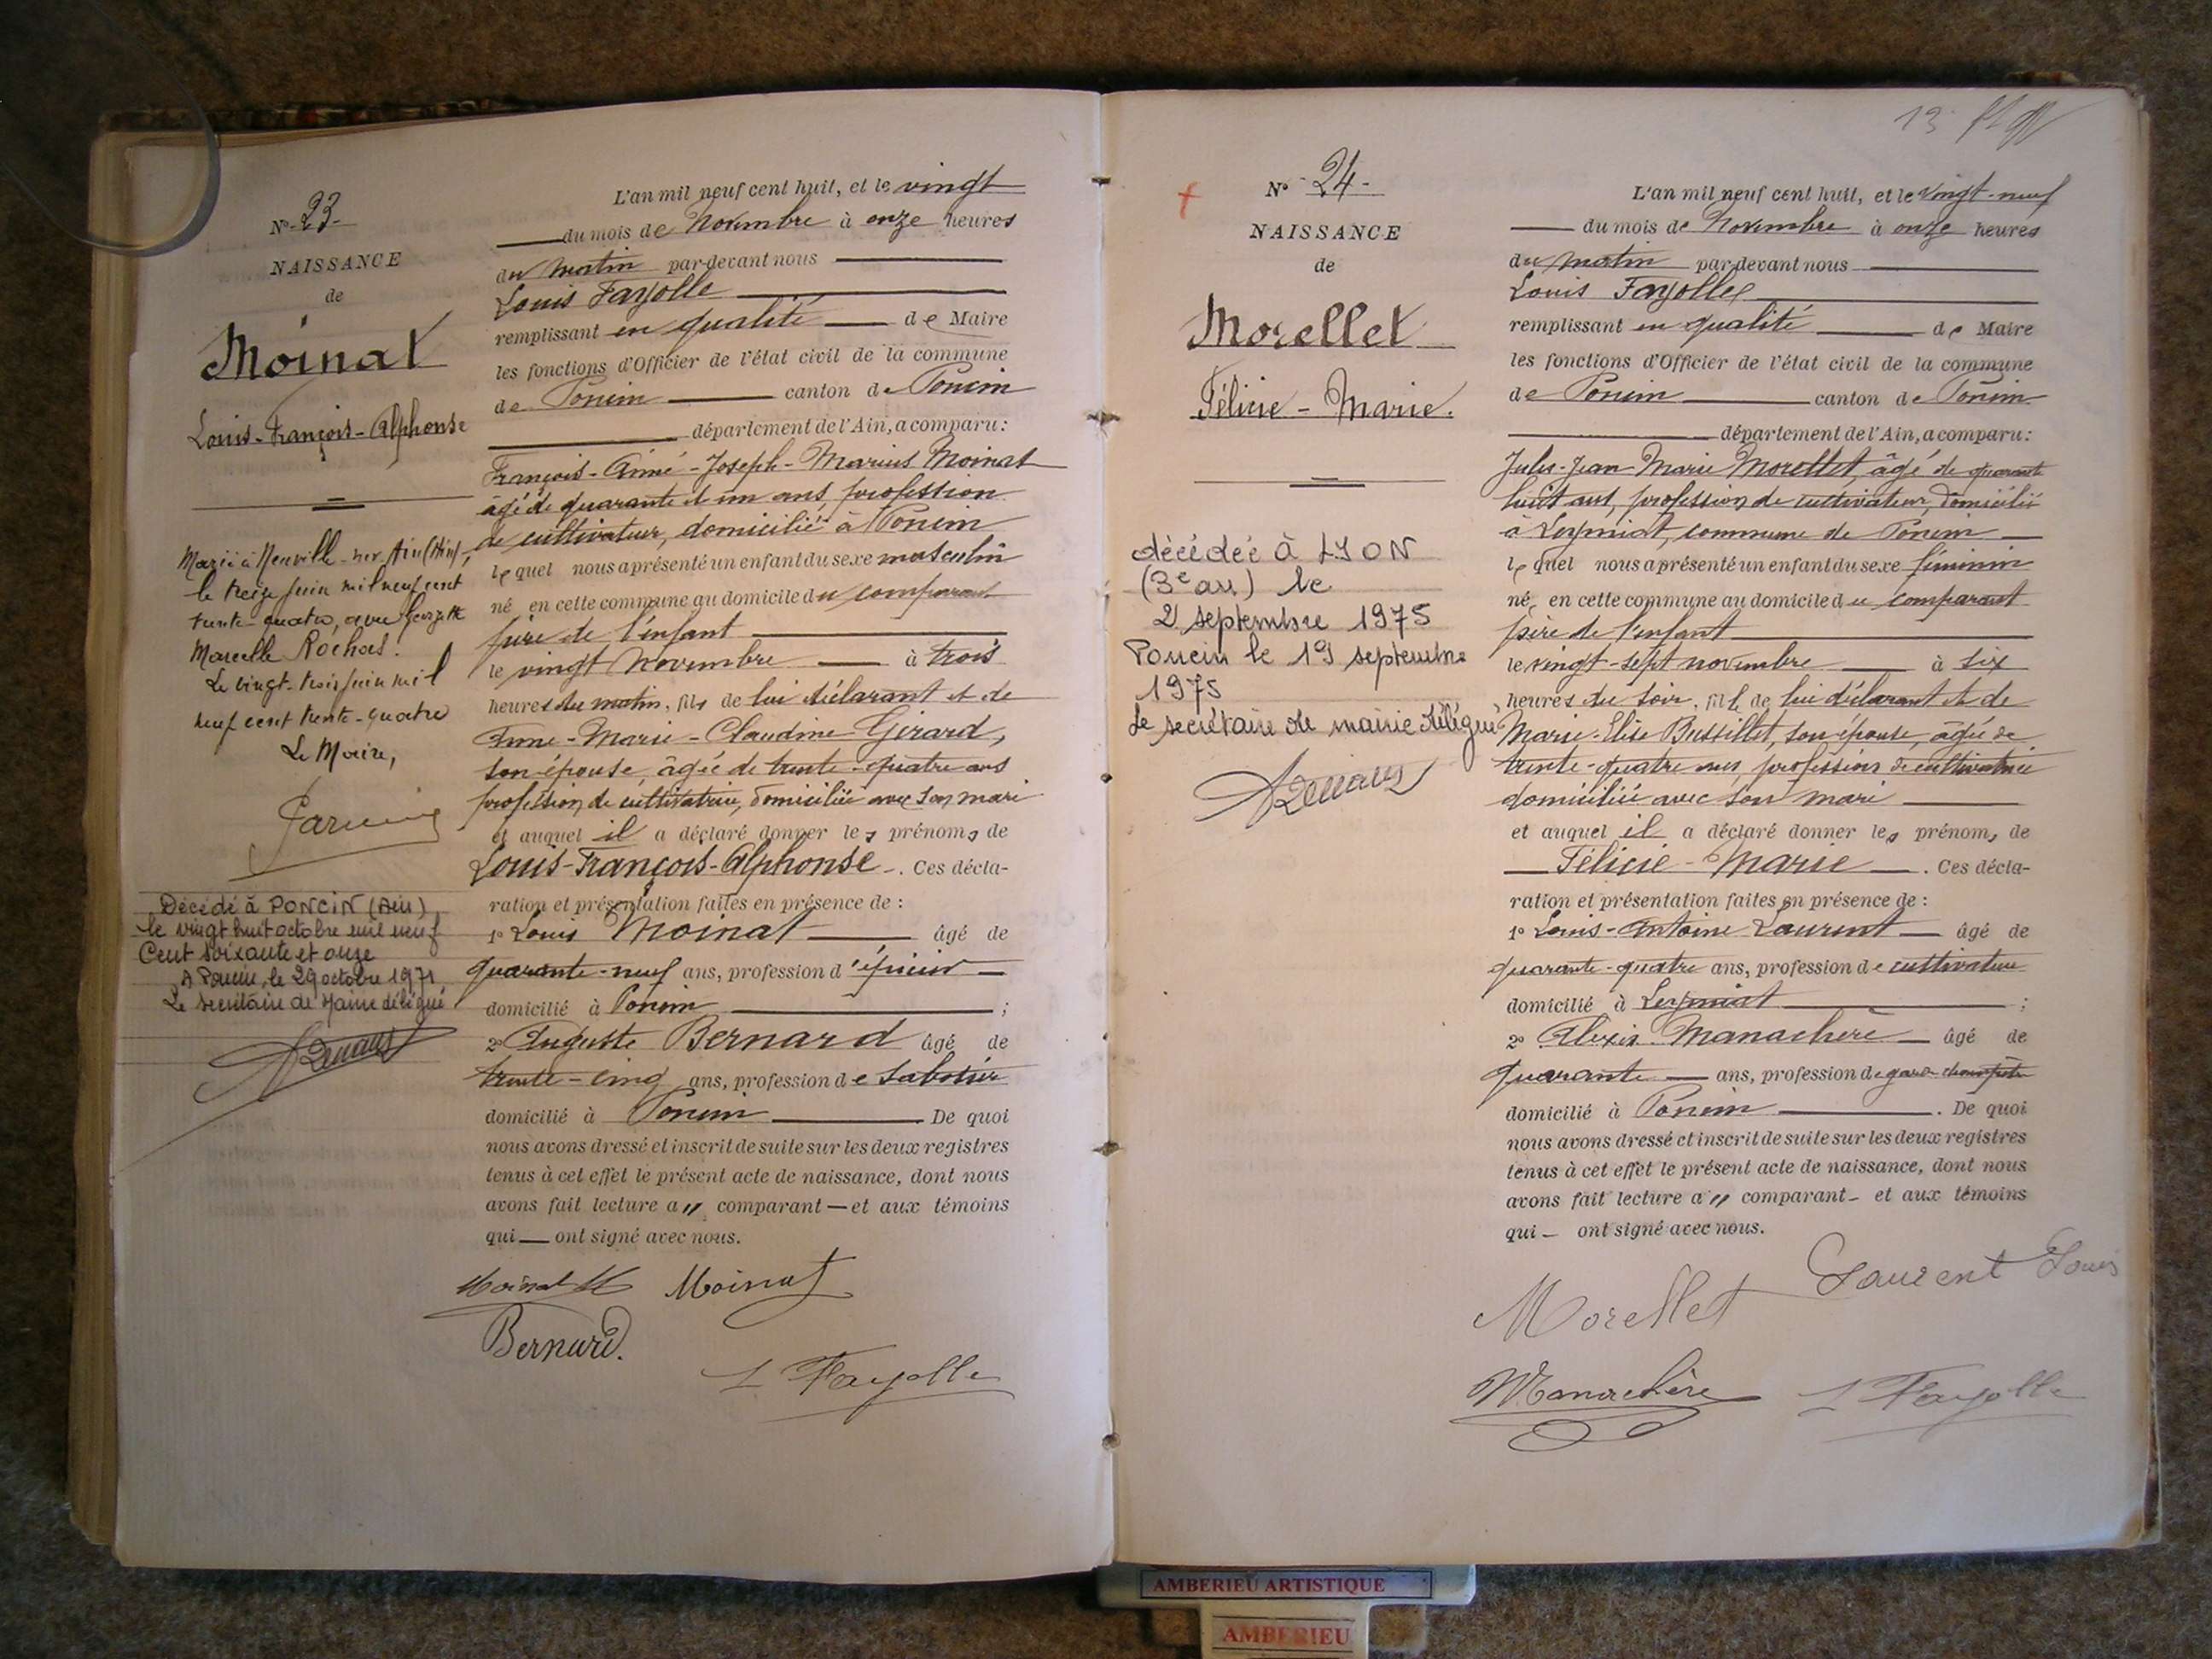 N° 23
NAISSANCE
de
Moinat
Louis-François-Alphonse
Marié à Neuville-sur-Ain (Ain),
le treize juin mil neuf cent
trente-quatre, avec Georgette
Marcelle Rochas.
Le vingt-trois juin mil
neuf cent trente-quatre
Le Maire,
Décédé à PONCIN (Ain)
le vingt huit octobre mil neuf
Cent soixante et onze
A Poncin, le 29 octobre 1971,
Le secrétaire de Mairie délégué
L'an mil neuf cent huit, et le vingt
du mois de Novembre à onze heures
du matin par-devant nous
Louis Fayolle
remplissant en qualité de Maire
les fonctions d'Officier de l'état civil de la commune
de Poncin canton de Poncin
département de l'Ain, a comparu:
François-Aimé-Joseph-Marius Moinat
âgé de quarante et un ans, profession
de cultivateur, domicilié à Poncin
lequel nous a présenté un enfant du sexe masculin
né en cette commune au domicile du comparant
père de l'enfant
le vingt Novembre à trois
heures du matin, fils de lui déclarant et de
Marie-Claudine Girard,
son épouse, âgée de trente-quatre ans
profession de cultivatrice, domiciliée avec son mari
et auquel il a déclaré donner les prénoms de
Louis-François-Alphonse. Ces décla-
ration et présentation faites en présence de :
1° Louis Moinat âgé de
quarante-neuf ans, profession d'épicier
domicilié à Poncin ;
2° Auguste Bernard âgé de
trente-cinq ans, profession de sabotier
domicilié à Poncin De quoi
nous avons dressé et inscrit de suite sur les deux registres
tenus à cet effet le présent acte de naissance, dont nous
avons fait lecture a" comparant — et aux témoins
qui — ont signé avec nous.
Moinat Moinat
Bernard.
L Fayolle
13
N° 24
NAISSANCE
de
Morellet
Félicie-Marie.
décédée à LYON
(3e arr) le
2 septembre 1975
Poncin le 19 septembre
1975
Le secrétaire de mairie délégué
L'an mil neuf cent huit, et le vingt-neuf
du mois de Novembre à onze heures
du matin par-devant nous
Louis Fayolle
remplissant en qualité de Maire
les fonctions d'Officier de l'état civil de la commune
de Poncin canton de Poncin
département de l'Ain, a comparu:
Jules-Jean Marie Morellet, âgé de quarante
huit ans, profession de cultivateur, domicilié
à Leymiat, commune de Poncin
lequel nous a présenté un enfant du sexe féminin
né en cette commune au domicile du comparant
père de l'enfant
le vingt-sept novembre à six
heures du soir, fille de lui déclarant et de
Marie-Elise Bussillet, son épouse, âgée de
trente-quatre ans, profession de cultivatrice
domiciliée avec son mari
et auquel il a déclaré donner les prénoms de
Félicie-Marie. Ces décla-
ration et présentation faites en présence de :
1° Louis-Antoine Laurent âgé de
quarante-quatre ans, profession de cultivateur
domicilié à Leymiat ;
2° Alexis Manachère âgé de
quarante ans, profession de garde champêtre
domicilié à Poncin. De quoi
nous avons dressé et inscrit de suite sur les deux registres
tenus à cet effet le présent acte de naissance, dont nous
avons fait lecture a" comparant — et aux témoins
qui — ont signé avec nous.
Laurent Louis
Morellet
Manachère L Fayolle
AMBERIEU ARTISTIQUE
AMBERIEU